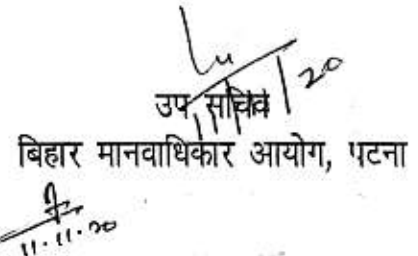 उप सचिव
बिहार मानवाधिकार आयोग, पटना
11.11.20